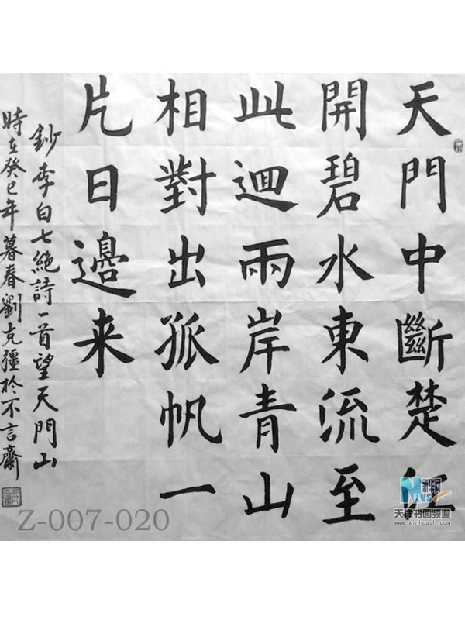 天門中斷楚江
開碧水東流至
此迴兩岸青山
相對出孤帆一
片日邊来
鈔李白七絕詩一首望天門山
時在癸巳年暮春劉克疆於不言齋
Z-007-020